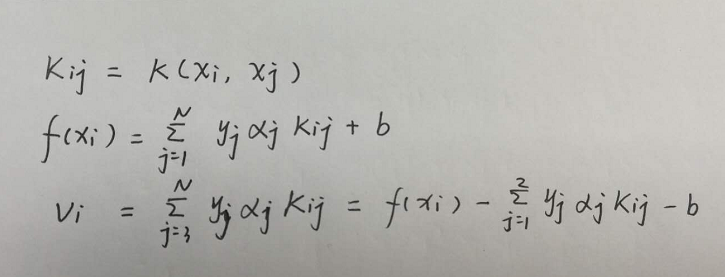 Kij = K(xi, xj)
f(xi) = Σ_{j=1}^{N} yj αj Kij + b
vi = Σ_{j=3}^{N} yj αj Kij = f(xi) - Σ_{j=1}^{2} yj αj Kij - b